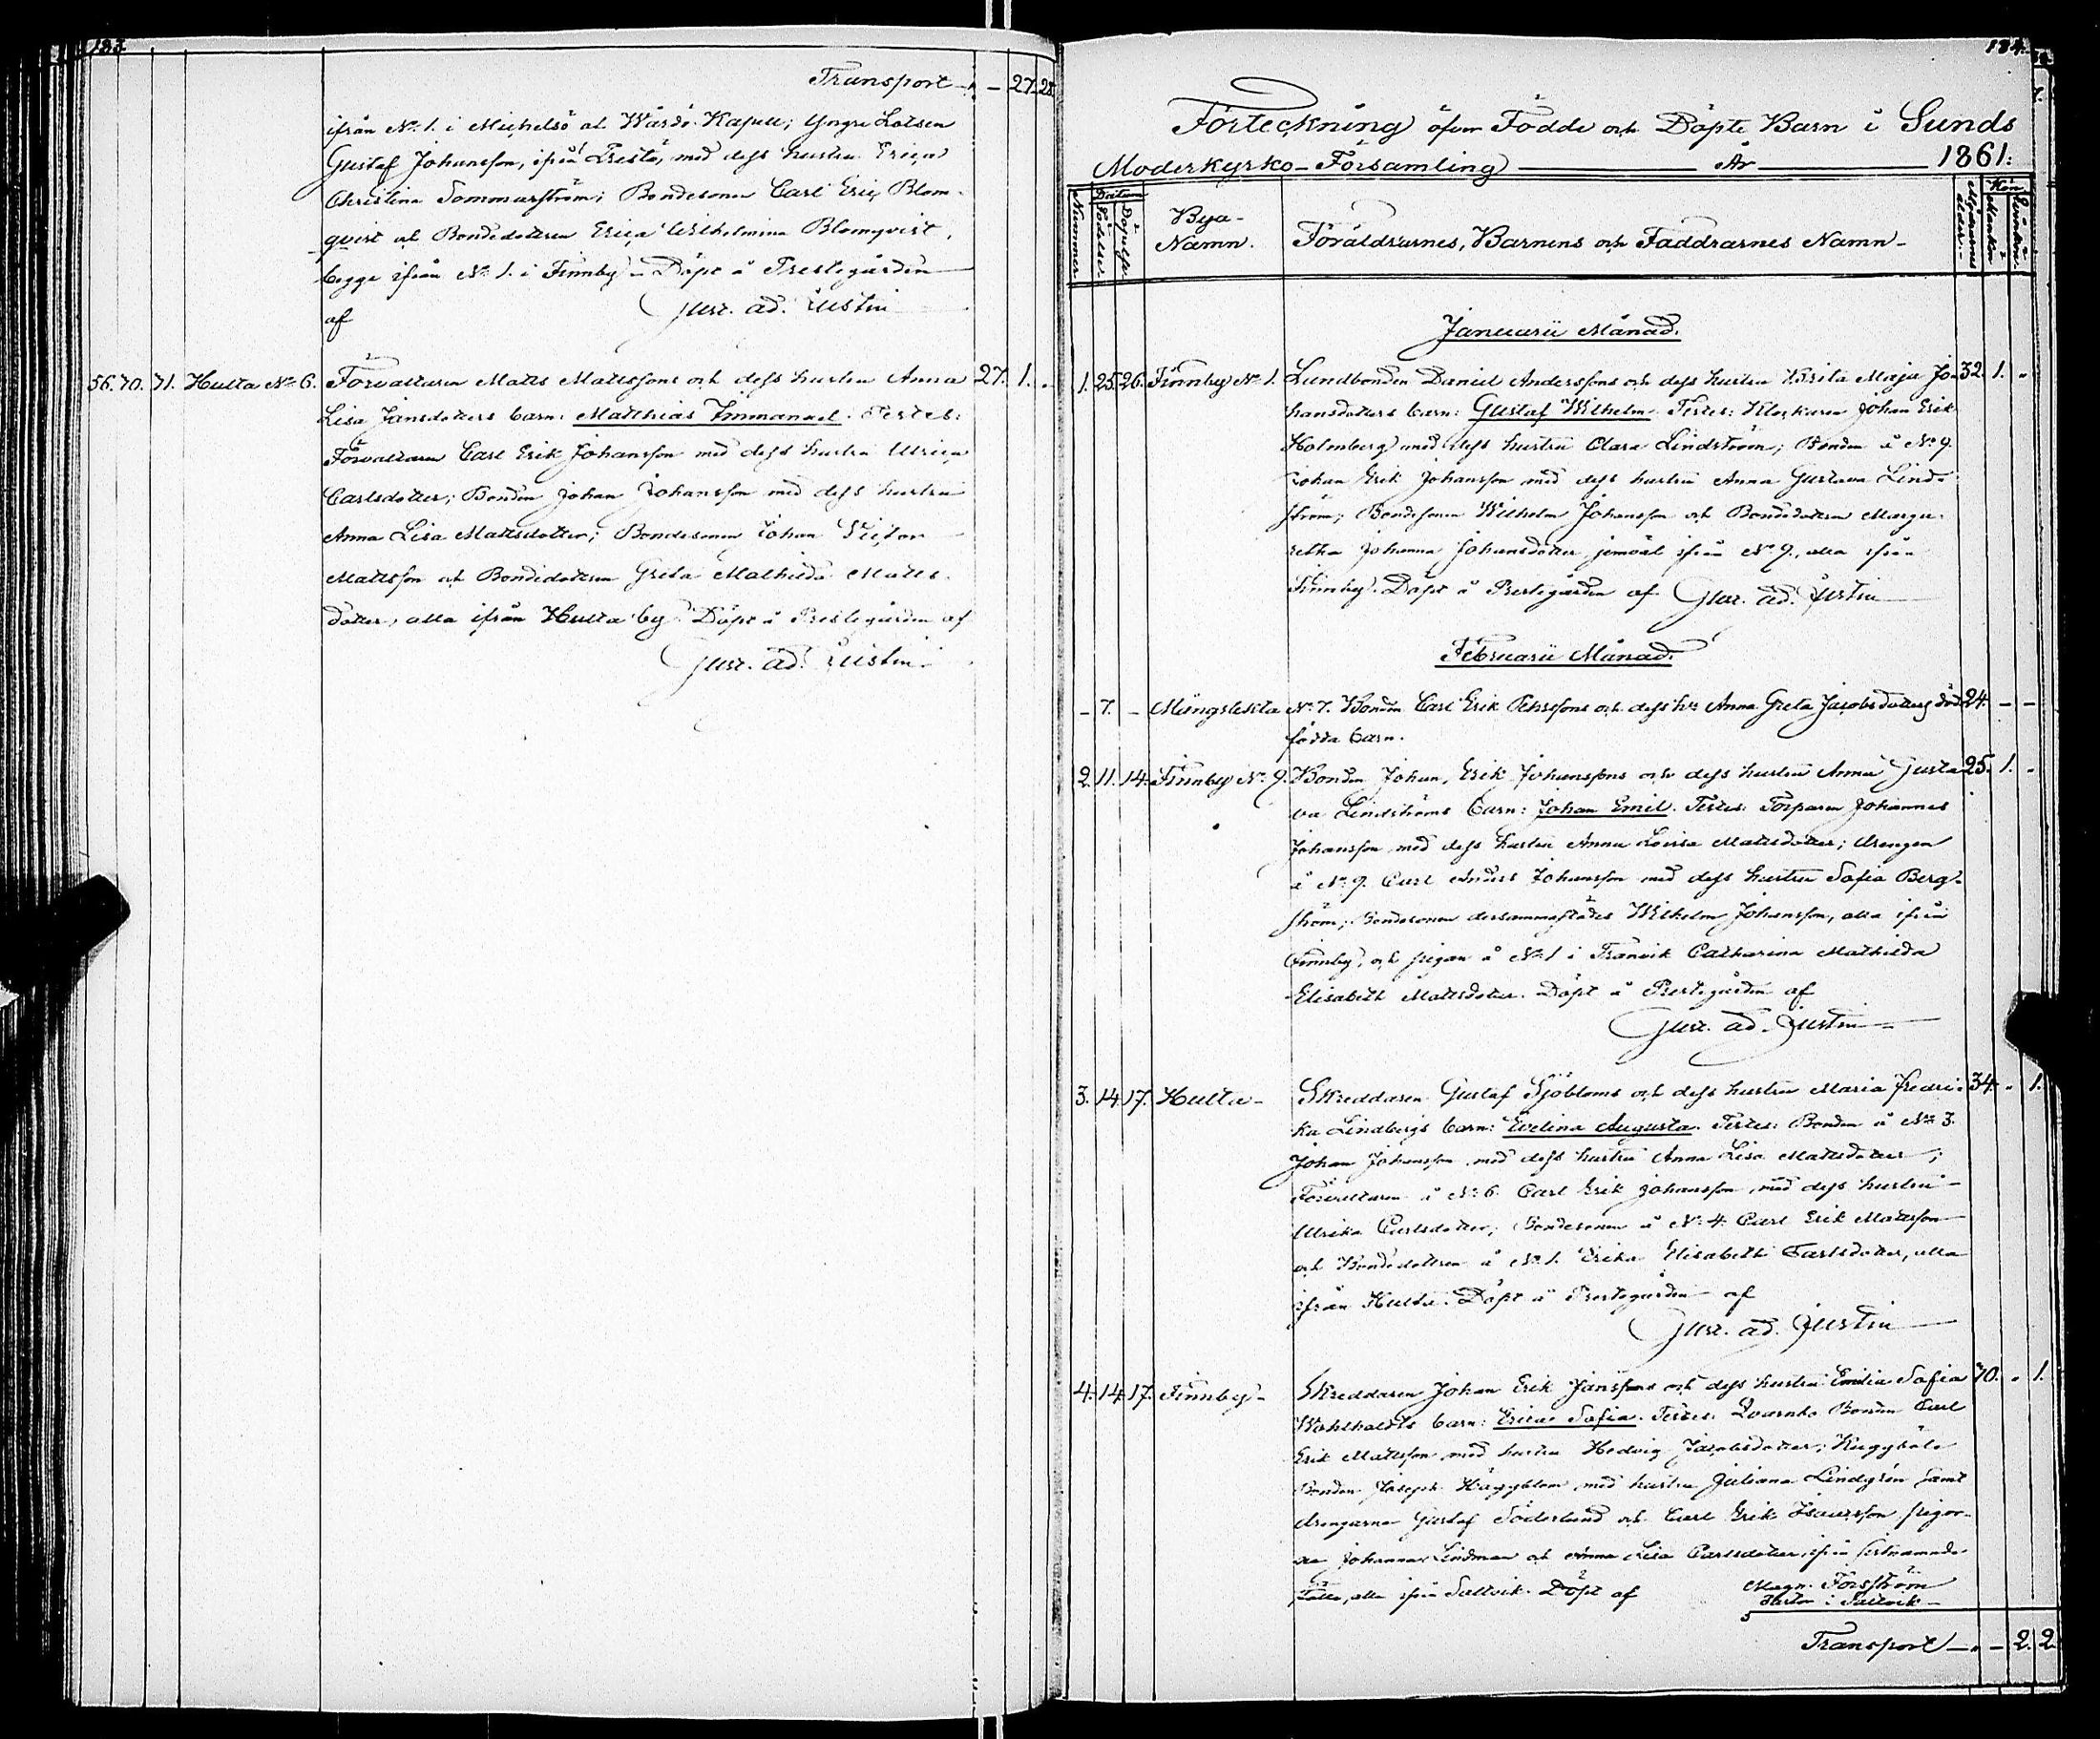 183.
Transport - - 27. 28.
ifrån N:o 1. i Michelsö
Gustaf Johansson, ifrån med dess hustru Erica
Christina Sommarström; Bondesonen Carl Eric Blom-
qvist och Bondedottren Erica Wilhelmina Blomqvist,
begge ifrån N:o 1. i Finnby. Döpt å Prestegården
af
56. 70. 71. Hulta N:o 6. Förvaltaren Matts Mattssons och dess hustru Anna 27. 1. "
Lisa Jansdotters barn: Matthias Immanuel. Testes:
Förvaltaren Carl Erik Johansson med dess hustru Ulrica
Carlsdotter; Bonden Johan Johansson med dess hustru
Anna Lisa Mattsdotter; Bondesonen Johan Victor
Mattsson och Bondedottren Greta Mathilda Matts-
dotter, alla ifrån Hulta by. Döpt å Prestegården af
184.
Förteckning öfver Födde och Döpte Barn i Sunds
Moderkyrko-Församling År 1861.
Nummer. Datum Födelse Döpelse Bya-Namn. Föräldrarnes, Barnens och Faddrarnes Namn Mödrarnes ålder. Kön Mankön Qvinkön
Januarii Månad.
1. 25. 26. Finnby N:o 1. Landbonden Daniel Anderssons och dess hustru Brita Maja Jo- 32. 1. "
hansdotters barn: Gustaf Wilhelm. Testes: Klockaren Johan Erik
Holmberg med dess hustru Clara Lindström; Bonden å N:o 9.
Johan Erik Johansson med dess hustru Anna Gustava Lind-
ström; Bondesonen Wilhelm Johansson och Bondedottren Marga-
retha Johanna Johansdotter jemväl ifrån N:o 9., alla ifrån
Finnby. Döpt å Prestegården af
Februarii Månad.
- 7. - Mångstekta N:o 7. Bonden Carl Erik Pehrssons och dess h:u Anna Greta Jacobsdotters död- 24. - -
födda barn.
2. 11. 14. Finnby N:o 9. Bonden Johan Erik Johanssons och dess hustru Anna Gusta- 25. 1. "
va Lindströms barn: Johan Emil. Testes: Torparen Johannes
Johansson med dess hustru Anna Lovisa Mattsdotter; Drengen
å N:o 9. Carl Anders Johansson med dess hustru Sofia Berg-
ström; Bondesonen dersammastädes Wilhelm Johansson, alla ifrån
Finnby, och pigan å N:o 1 i Tranvik Catharina Mathilda
Elisabeth Mattsdotter. Döpt å Prestegården af
3. 14. 17. Hulta - Skreddaren Gustaf Sjöbloms och dess hustru Maria Fredri- 34. " 1.
ka Lindbergs barn: Evelina Augusta. Testes: Bonden å N:o 3.
Johan Johansson med dess hustru Anna Lisa Mattsdotter;
Förvaltaren å N:o 6. Carl Erik Johansson med dess hustru
Ulrika Carlsdotter; Bondesonen å N:o 4. Carl Erik Mattsson
och Bondedottren å N:o 1. Erika Elisabeth Carlsdotter, alla
ifrån Hulta. Döpt å Prestegården af
4. 14. 17. Finnby - Skreddaren Johan Erik Janssons och dess hustru Emilia Sofia 40. " 1.
barn: Erica Sofia. Testes: Qvarnbo Bonden Carl
Erik Mattsson med hustru Hedvig Jacobsdotter;
Bonden Joseph Häggblom med hustru Juliana Lindgrén samt
drengarne Gustaf Söderlund och Carl Erik Isacsson pigor-
na Johanna Lindman och Anna Lisa Carlsdotter, ifrån
alla ifrån Saltvik. Döpt af Magn. Forsström
i Saltvik
Transport - - 2. 2.